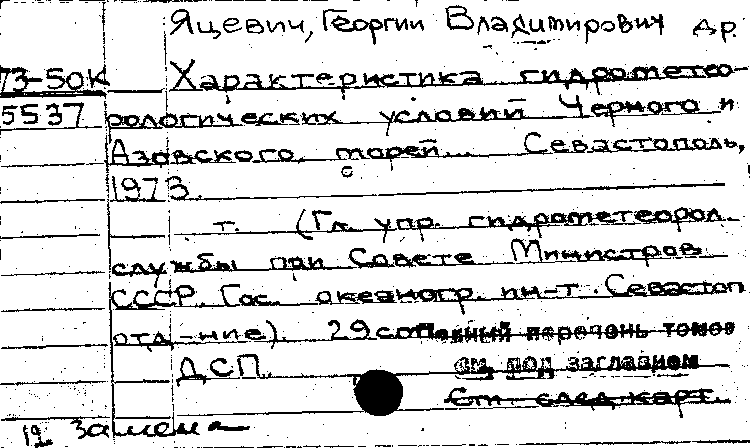 Яцевич, Георгий Владимирович др.
73-50К Характеристика гидрометео-
5537 рологических условий Черного и
Азовского морей... Севастополь,
1973.
т. (Гл. упр. гидрометеорол.
службы при Совете Министров
СССР. Гос. океаногр. ин-т. Севастоп.
отд-ние). 29см Полный перечень томов
ДСП. см. под заглавием
См. след. карт.
Замена